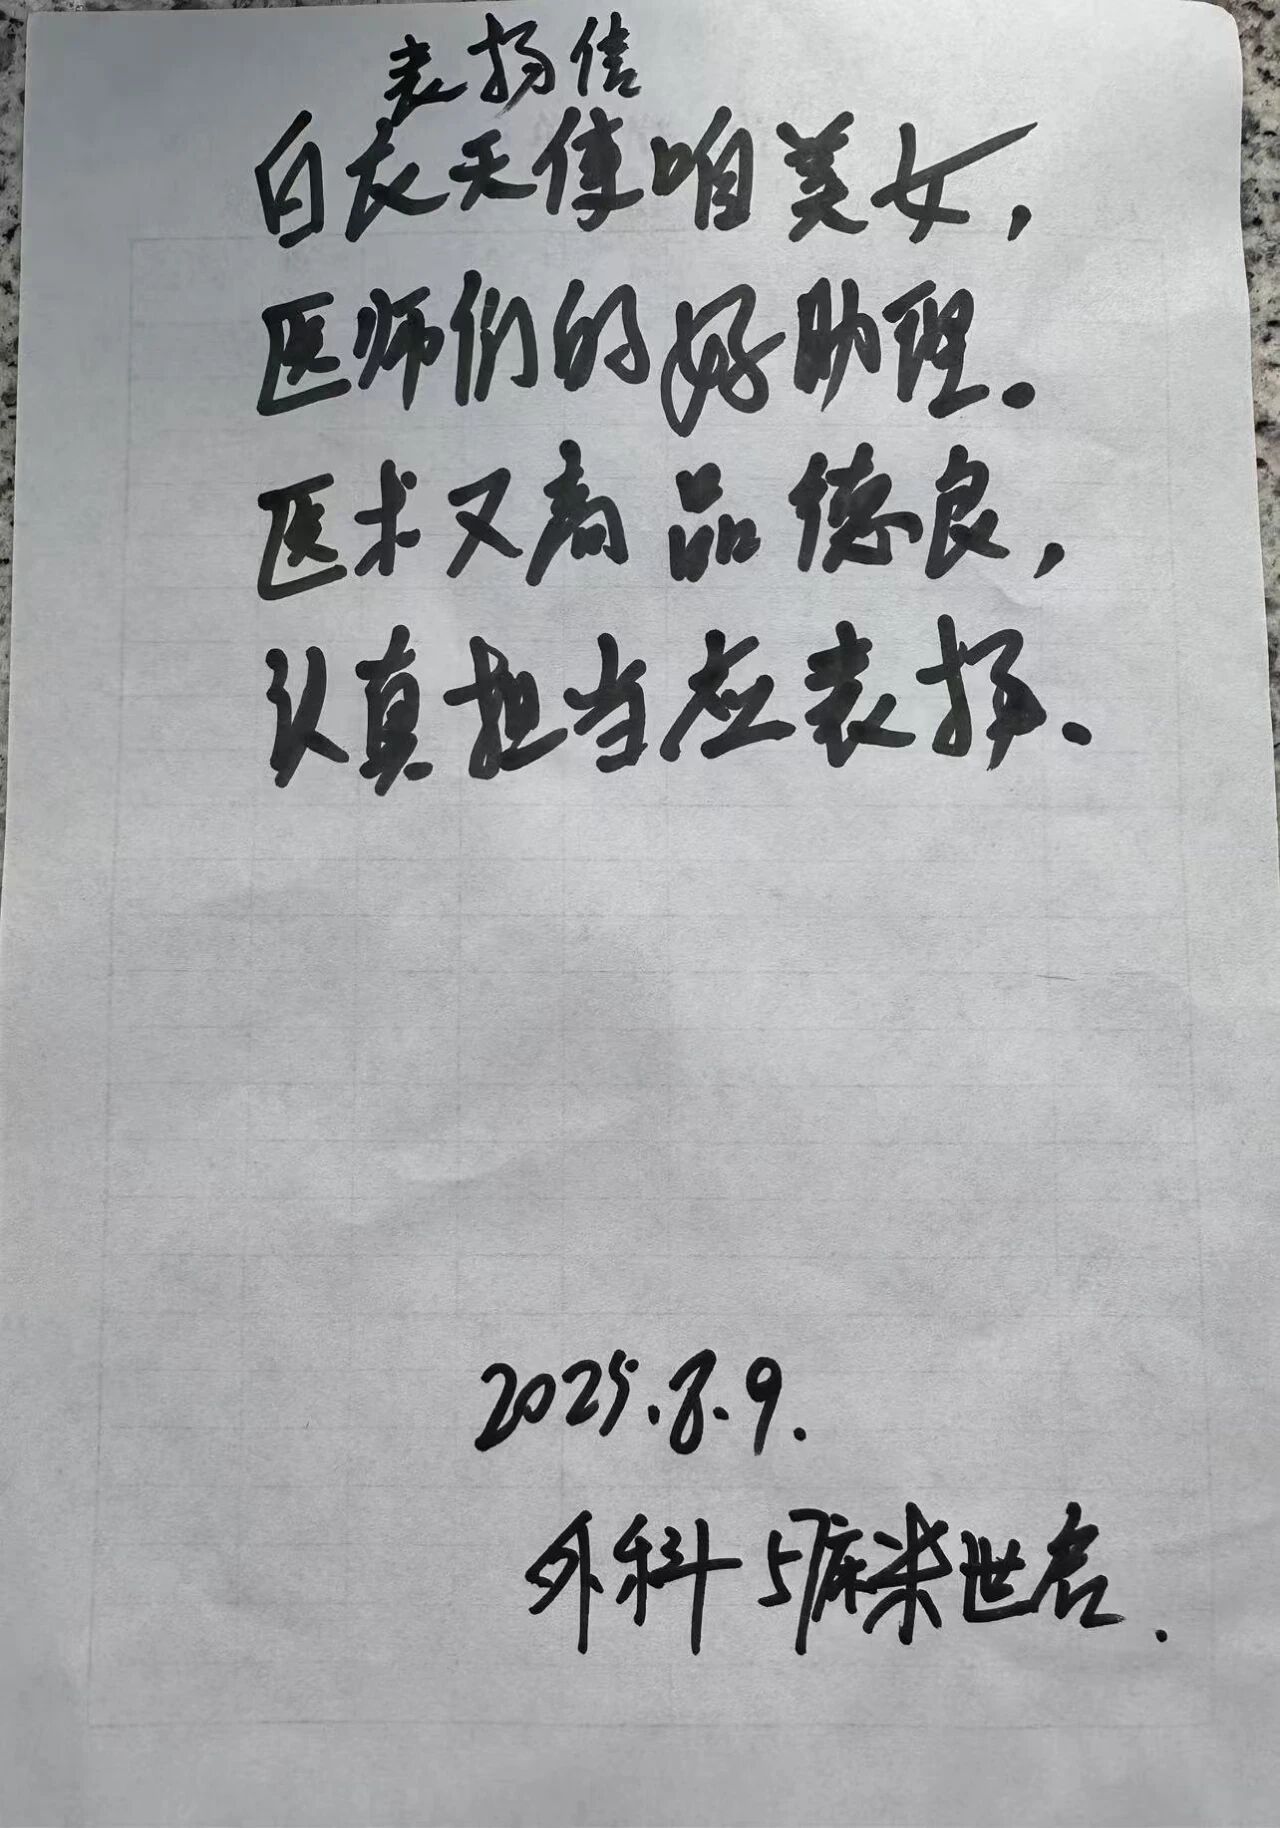 表扬信
白衣天使咱美女，
医师们的好助理。
医术又高品德良，
认真担当应表扬。
2025.8.9.
外科 57床米世启.